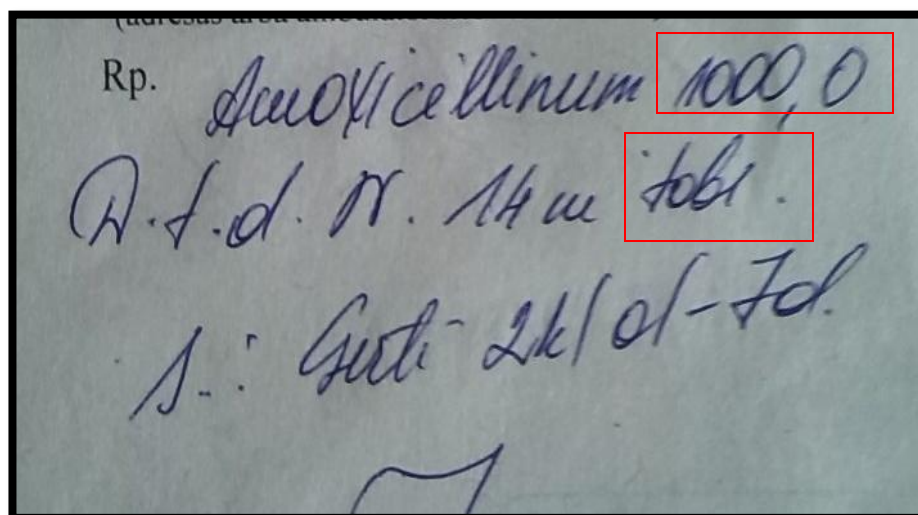 Rp. Amoxicillinum 1000,0
D.t.d. N. 14 in tabl.
S.: Gerti 2k/d - 7d.